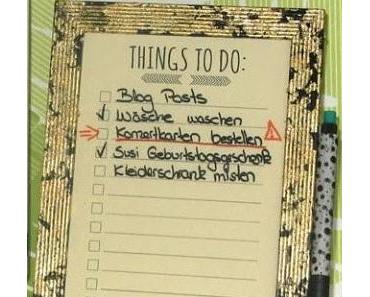 THINGS TO DO:
Blog Posts
Wäsche waschen
Konzertkarten bestellen
Susi Geburtstagsgeschenk
Kleiderschrank misten